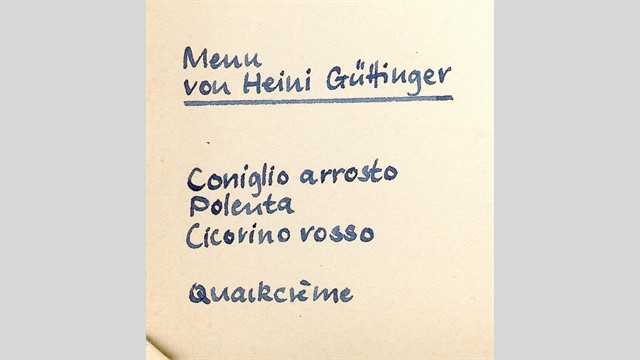 Menu
von Heini Güttinger
Coniglio arrosto
Polenta
Cicorino rosso
Quarkcrème